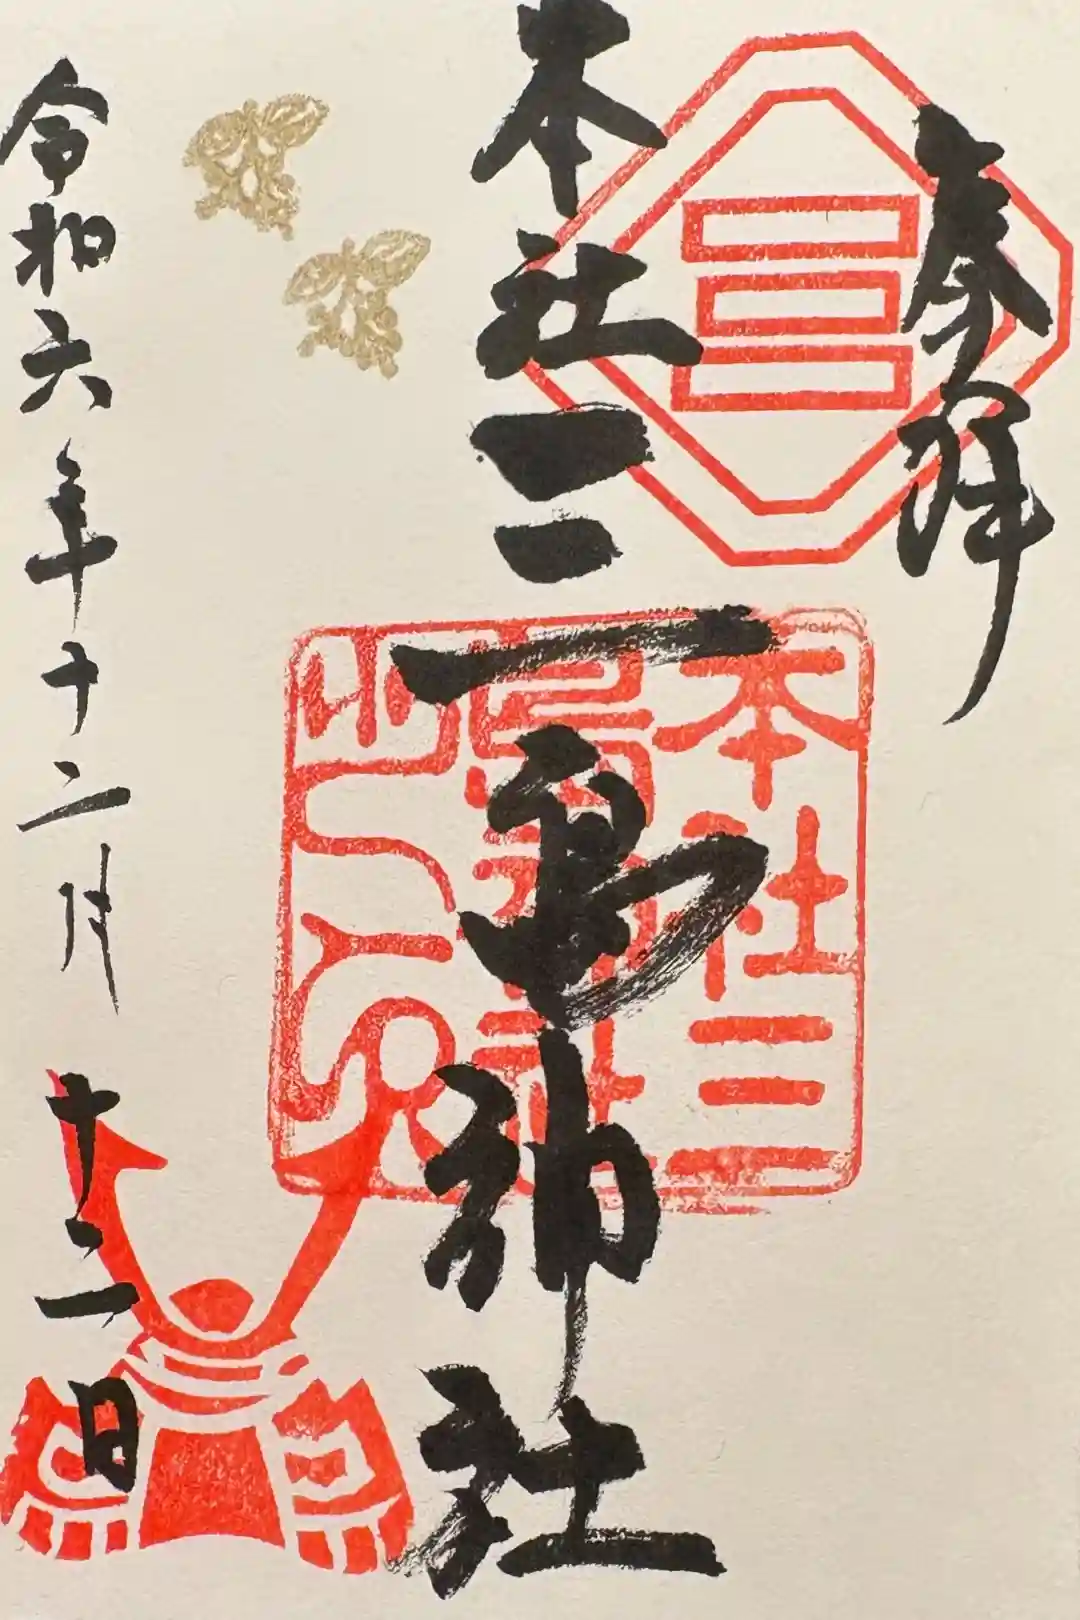 奉拝
本社三島神社
令和六年十二月十二日
本社三
島神社